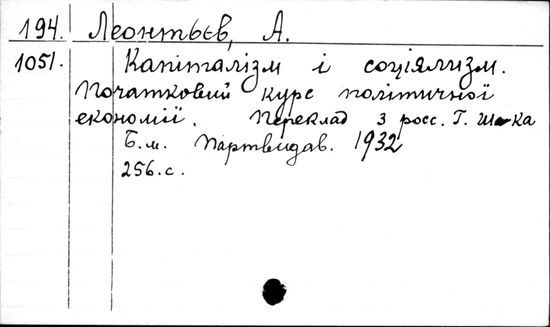 194. Леонтьєв, А.
1051. Капіталізм і соціялизм.
Початковий курс політичної
економії. Переклад з росс. Г.
Б.м. Партвидав. 1932
256.с.